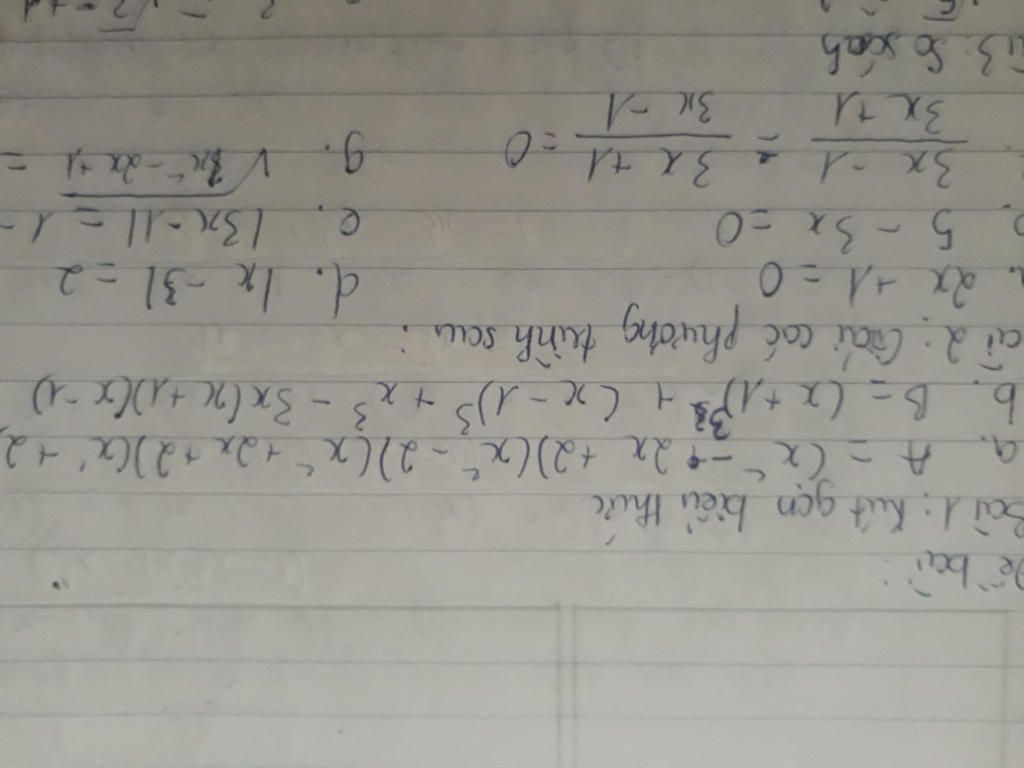 Đề bài:
Bài 1: Rút gọn biểu thức
a. A = (x² - 2x + 2)(x² - 2)(x² + 2x + 2)(x² + 2
b. B = (x+1)³ + (x - 1)³ + x³ - 3x(x+1)(x-1)
ài 2: Giải các phương trình sau:
a. 2x + 1 = 0 d. |x - 3| = 2
b. 5 - 3x = 0 e. |3x - 1| = 1 -
c. (3x - 1)/(3x + 1) - (3x + 1)/(3x - 1) = 0 g. √(x² - 2x + 1) =
ài 3: So sánh